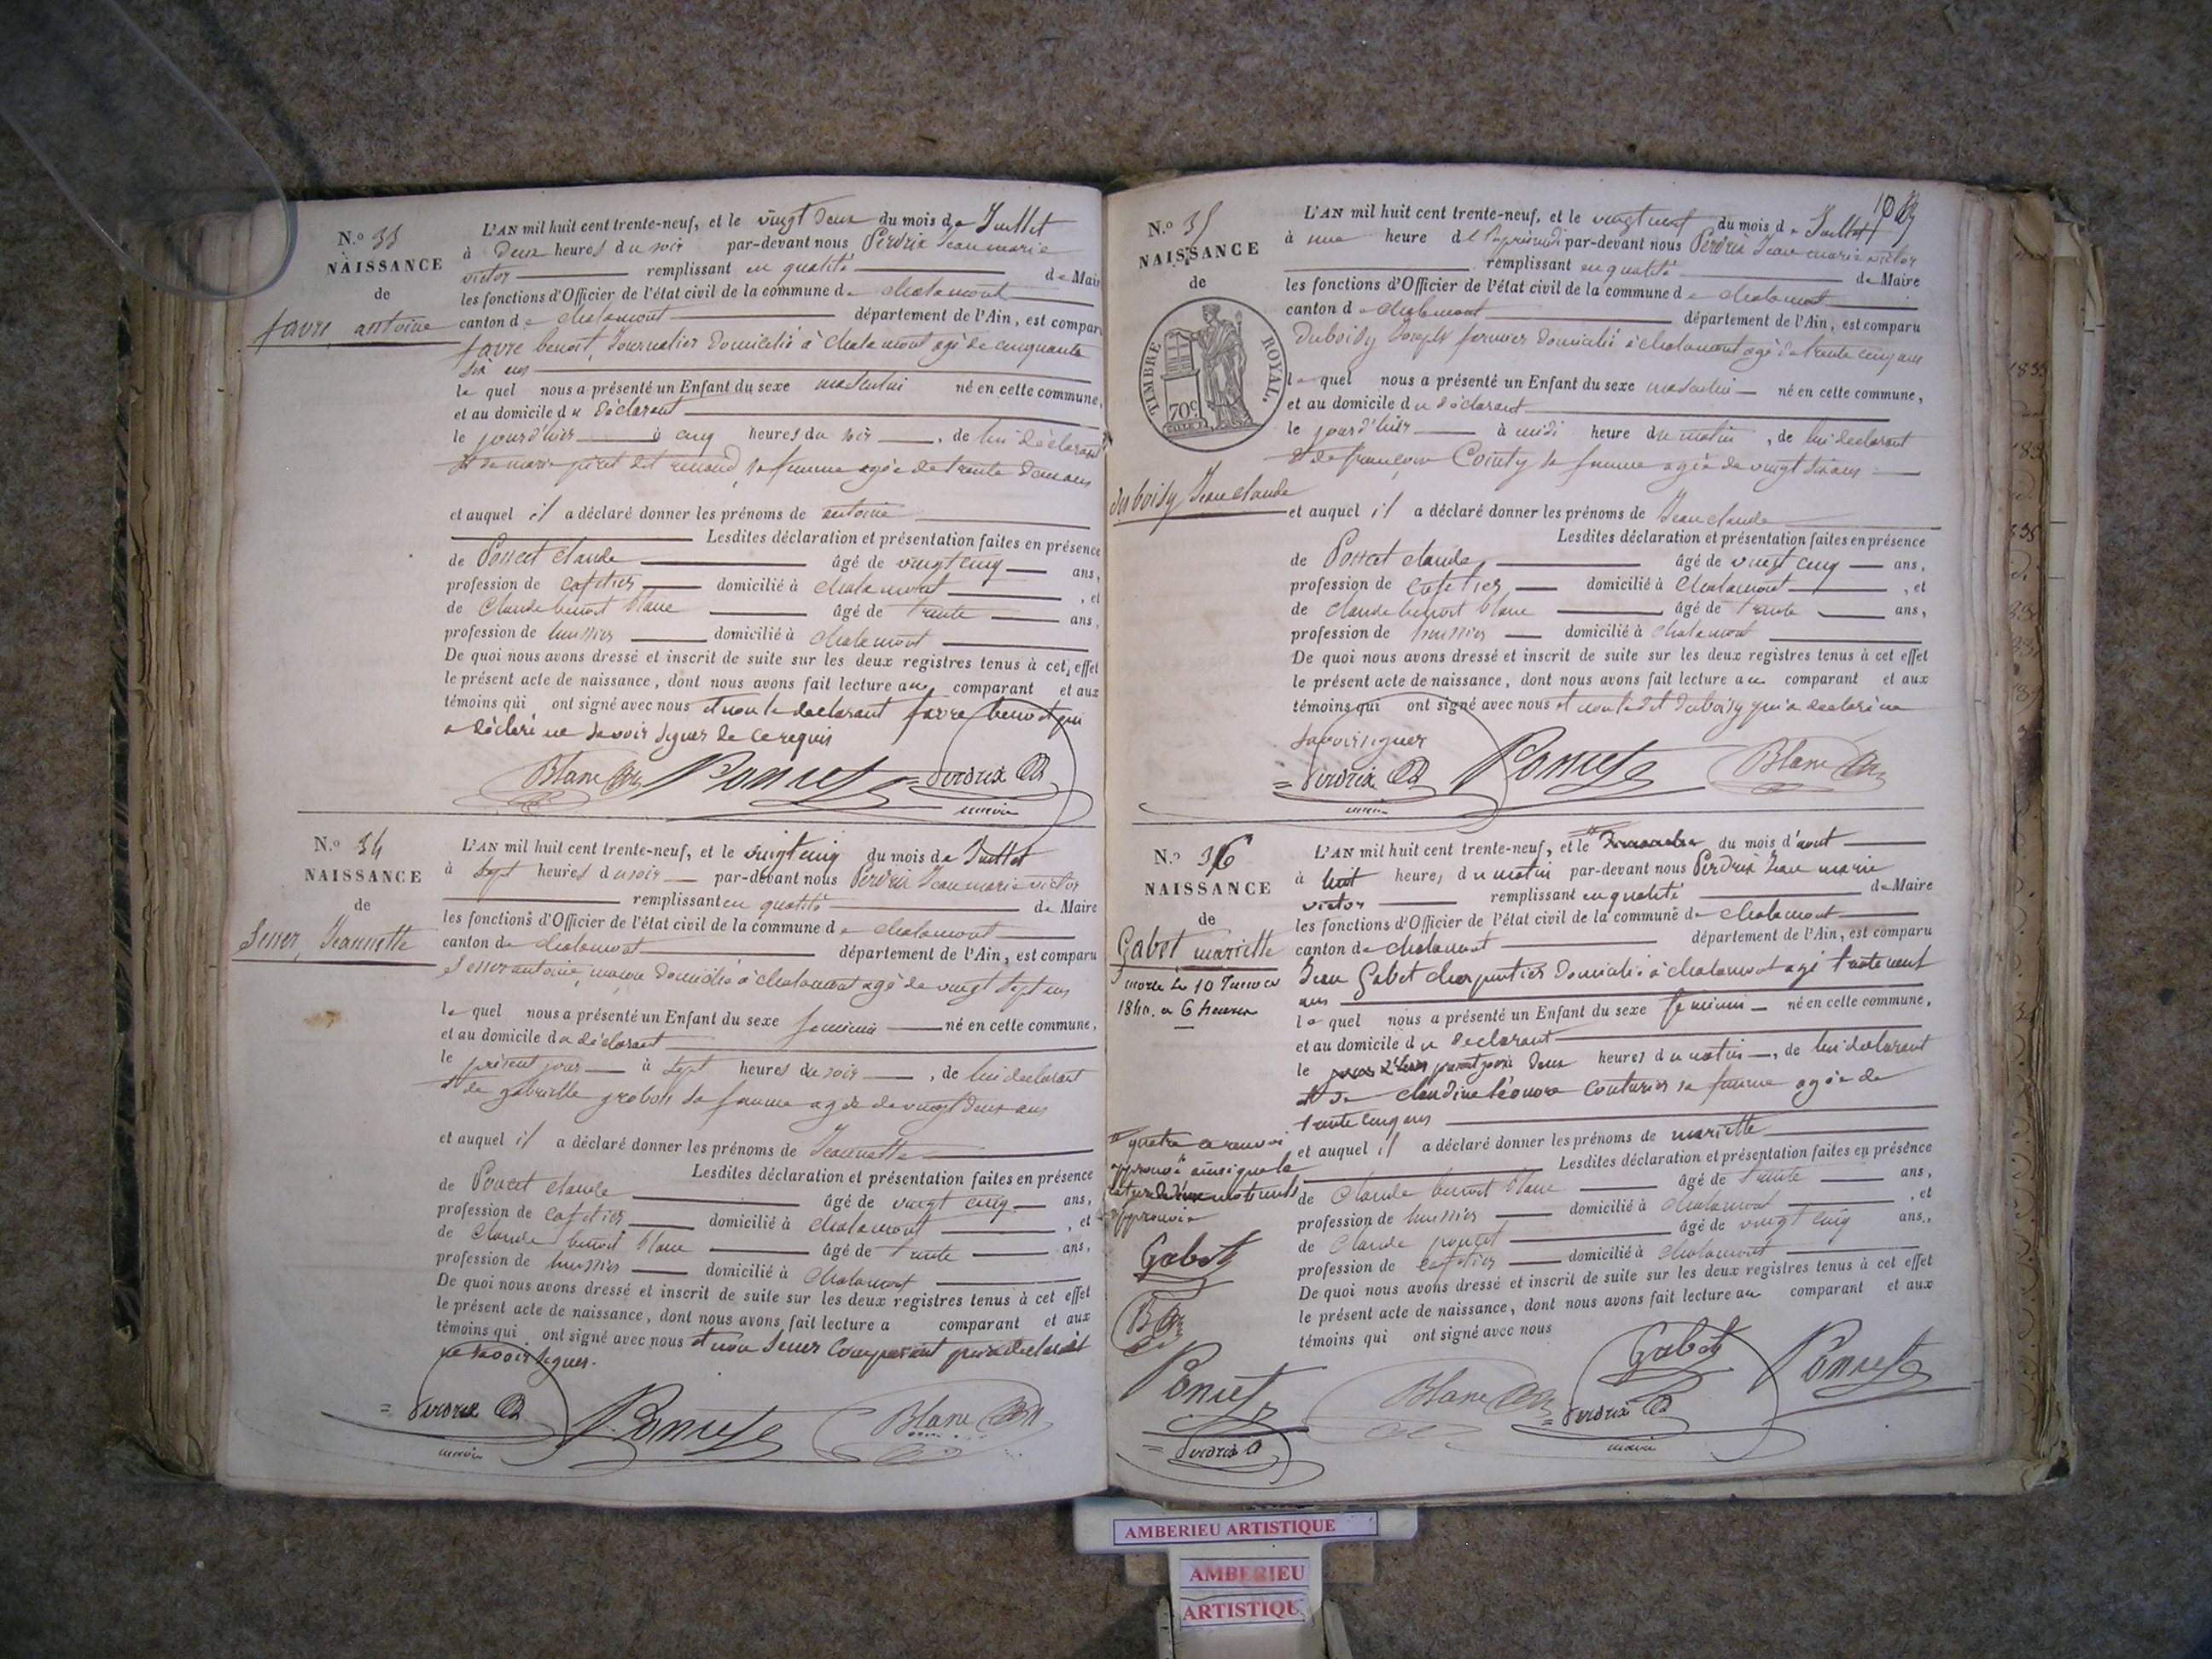 N.º 33
NAISSANCE
de
favre antoine
L'AN mil huit cent trente-neuf, et le vingt deux du mois de Juillet
à deux heures du soir par-devant nous Perdrix Jean marie
victor remplissant en qualité de Mair
les fonctions d'Officier de l'état civil de la commune de chalamont
canton de chalamont département de l'Ain, est compar
favre benoit, Journalier domicilié à chalamont agé de cinquante
six ans
le quel nous a présenté un Enfant du sexe masculin né en cette commune,
et au domicile du déclarant
le jourd'hier à cinq heures du soir, de lui déclarant
et de marie piret dit renaud, sa femme agée de trente deux ans
et auquel il a déclaré donner les prénoms de antoine
Lesdites déclaration et présentation faites en présence
de Poncet claude âgé de vingt cinq ans,
profession de cafetier domicilié à chalamont, et
de Claude benoit blanc âgé de trente ans,
profession de huissier domicilié à chalamont
De quoi nous avons dressé et inscrit de suite sur les deux registres tenus à cet effet
le présent acte de naissance, dont nous avons fait lecture au comparant et aux
témoins qui ont signé avec nous et non le déclarant favre benoit qui
a déclaré ne savoir signer de ce requis
Blanc Poncet Perdrix
maire
N.º 34
NAISSANCE
de
Serrer, Jeannette
L'AN mil huit cent trente-neuf, et le vingt cinq du mois de Juillet
à sept heures du soir par-devant nous Perdrix Jean marie victor
remplissant en qualité de Maire
les fonctions d'Officier de l'état civil de la commune de chalamont
canton de chalamont département de l'Ain, est comparu
Serrer antoine, maçon domicilié à chalamont agé de vingt sept ans
le quel nous a présenté un Enfant du sexe feminin né en cette commune,
et au domicile du déclarant
le présent jour à sept heures du soir, de lui déclarant
et de gabrielle grobon sa femme agée de vingt deux ans
et auquel il a déclaré donner les prénoms de Jeannette
Lesdites déclaration et présentation faites en présence
de Poncet claude âgé de vingt cinq ans,
profession de cafetier domicilié à chalamont, et
de Claude benoit blanc âgé de trente ans,
profession de huissier domicilié à chalamont
De quoi nous avons dressé et inscrit de suite sur les deux registres tenus à cet effet
le présent acte de naissance, dont nous avons fait lecture a comparant et aux
témoins qui ont signé avec nous et non Serrer comparant qui a déclaré
ne savoir signer.
Perdrix Poncet Blanc
maire
N.º 35
NAISSANCE
de
TIMBRE ROYAL.
70c
duboisy Jean claude
L'AN mil huit cent trente-neuf, et le vingt neuf du mois de Juillet
à une heure de l'aprèsmidi par-devant nous Perdrix Jean marie victor
remplissant en qualité de Maire
les fonctions d'Officier de l'état civil de la commune de chalamont
canton de chalamont département de l'Ain, est comparu
duboisy Joseph fermier domicilié à chalamont agé de trente cinq ans
le quel nous a présenté un Enfant du sexe masculin né en cette commune,
et au domicile du déclarant
le jourd'hier à midi heure du matin, de lui déclarant
et de françoise Cointy sa femme agée de vingt six ans
et auquel il a déclaré donner les prénoms de Jean claude
Lesdites déclaration et présentation faites en présence
de Poncet claude, âgé de vingt cinq ans,
profession de cafetier domicilié à Chalamont, et
de claude benoit blanc âgé de trente ans,
profession de huissier domicilié à chalamont
De quoi nous avons dressé et inscrit de suite sur les deux registres tenus à cet effet
le présent acte de naissance, dont nous avons fait lecture au comparant et aux
témoins qui ont signé avec nous et non ledit duboisy qui a déclaré ne
savoir signer
Perdrix Poncet Blanc
maire
N.º 36
NAISSANCE
de
Gabet mariette
morte le 10
à 6 heures
L'AN mil huit cent trente-neuf, et le du mois d'aout
à huit heures du matin par-devant nous Perdrix Jean marie
victor remplissant en qualité de Maire
les fonctions d'Officier de l'état civil de la commune de chalamont
canton de chalamont département de l'Ain, est comparu
Jean Gabet charpentier domicilié à chalamont agé trente neuf
ans
le quel nous a présenté un Enfant du sexe feminin né en cette commune,
et au domicile du déclarant
le present jour à deux heures du matin, de lui déclarant
et de claudine Léonore Couturier sa femme agée de
trente cinq ans
et auquel il a déclaré donner les prénoms de mariette
Lesdites déclaration et présentation faites en présence
de Claude benoit blanc âgé de trente ans,
profession de huissier domicilié à chalamont, et
de Claude poncet âgé de vingt cinq ans,
profession de cafetier domicilié à chalamont
De quoi nous avons dressé et inscrit de suite sur les deux registres tenus à cet effet
le présent acte de naissance, dont nous avons fait lecture au comparant et aux
témoins qui ont signé avec nous
quatre ce renvoi
approuvé ainsi que la
approuvée
Gabet
Poncet
Perdrix
Blanc Gabet Poncet
Perdrix
maire
AMBERIEU ARTISTIQUE
AMBERIEU
ARTISTIQU